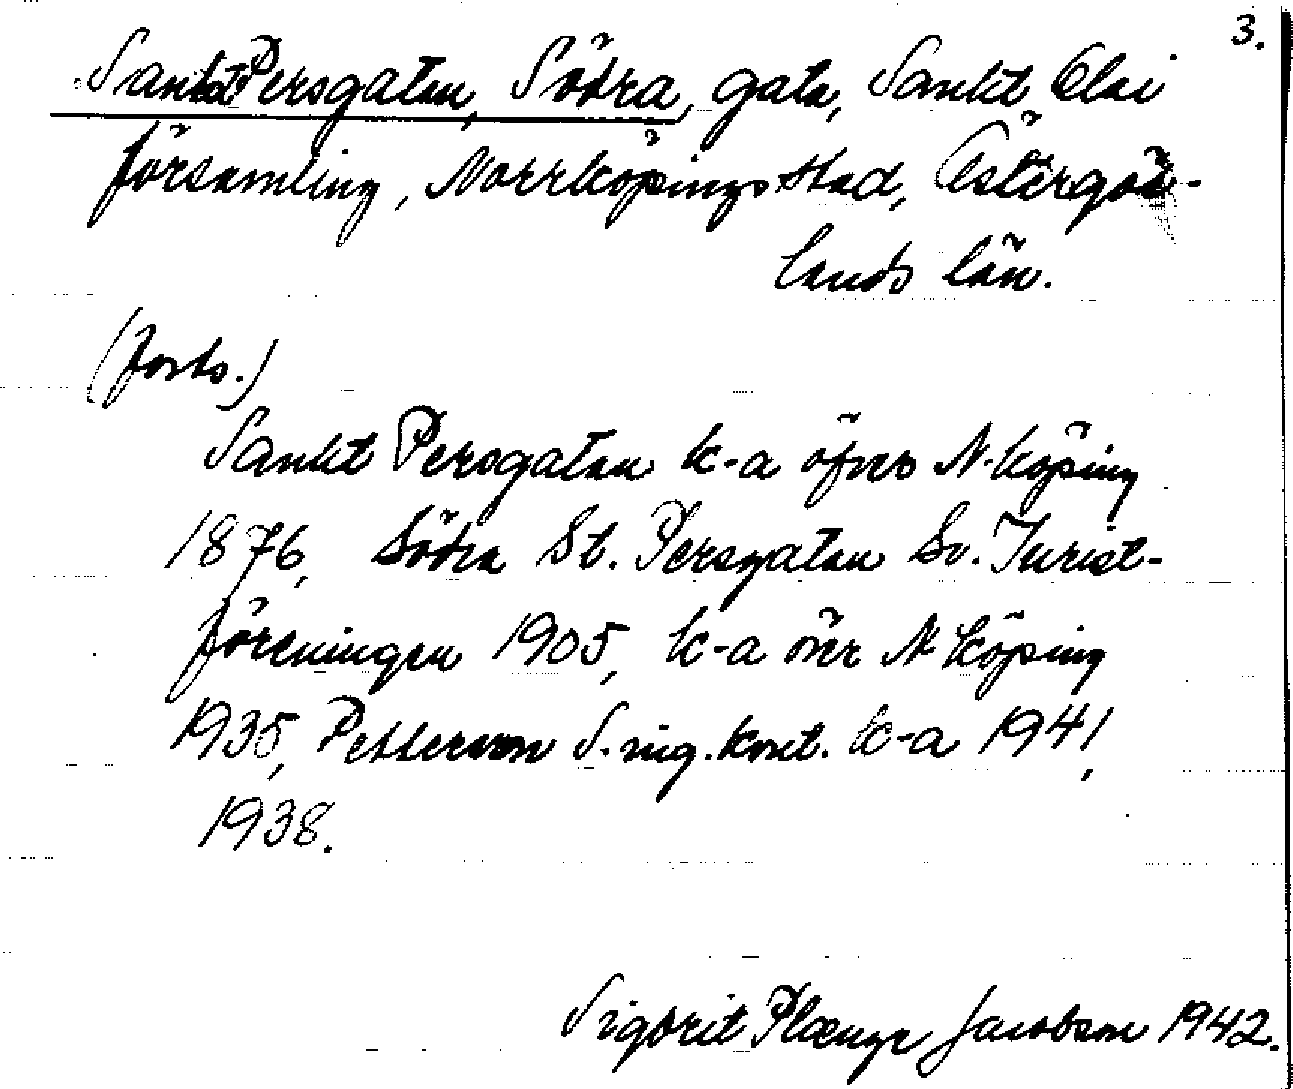 3.
Sankt Persgatan, Södra, gata, Sankt Olai
församling, Norrköpings stad, Östergöt-
lands län.
(forts.)
Sankt Persgatan k-a öfver N-köping
1876, Södra St. Persgatan Sv. Turist-
föreningen 1905, k-a över N köping
1935, Pettersson S. ing. kont. k-a 1941,
1938.
Sigbrit Plænge Jacobson 1942.